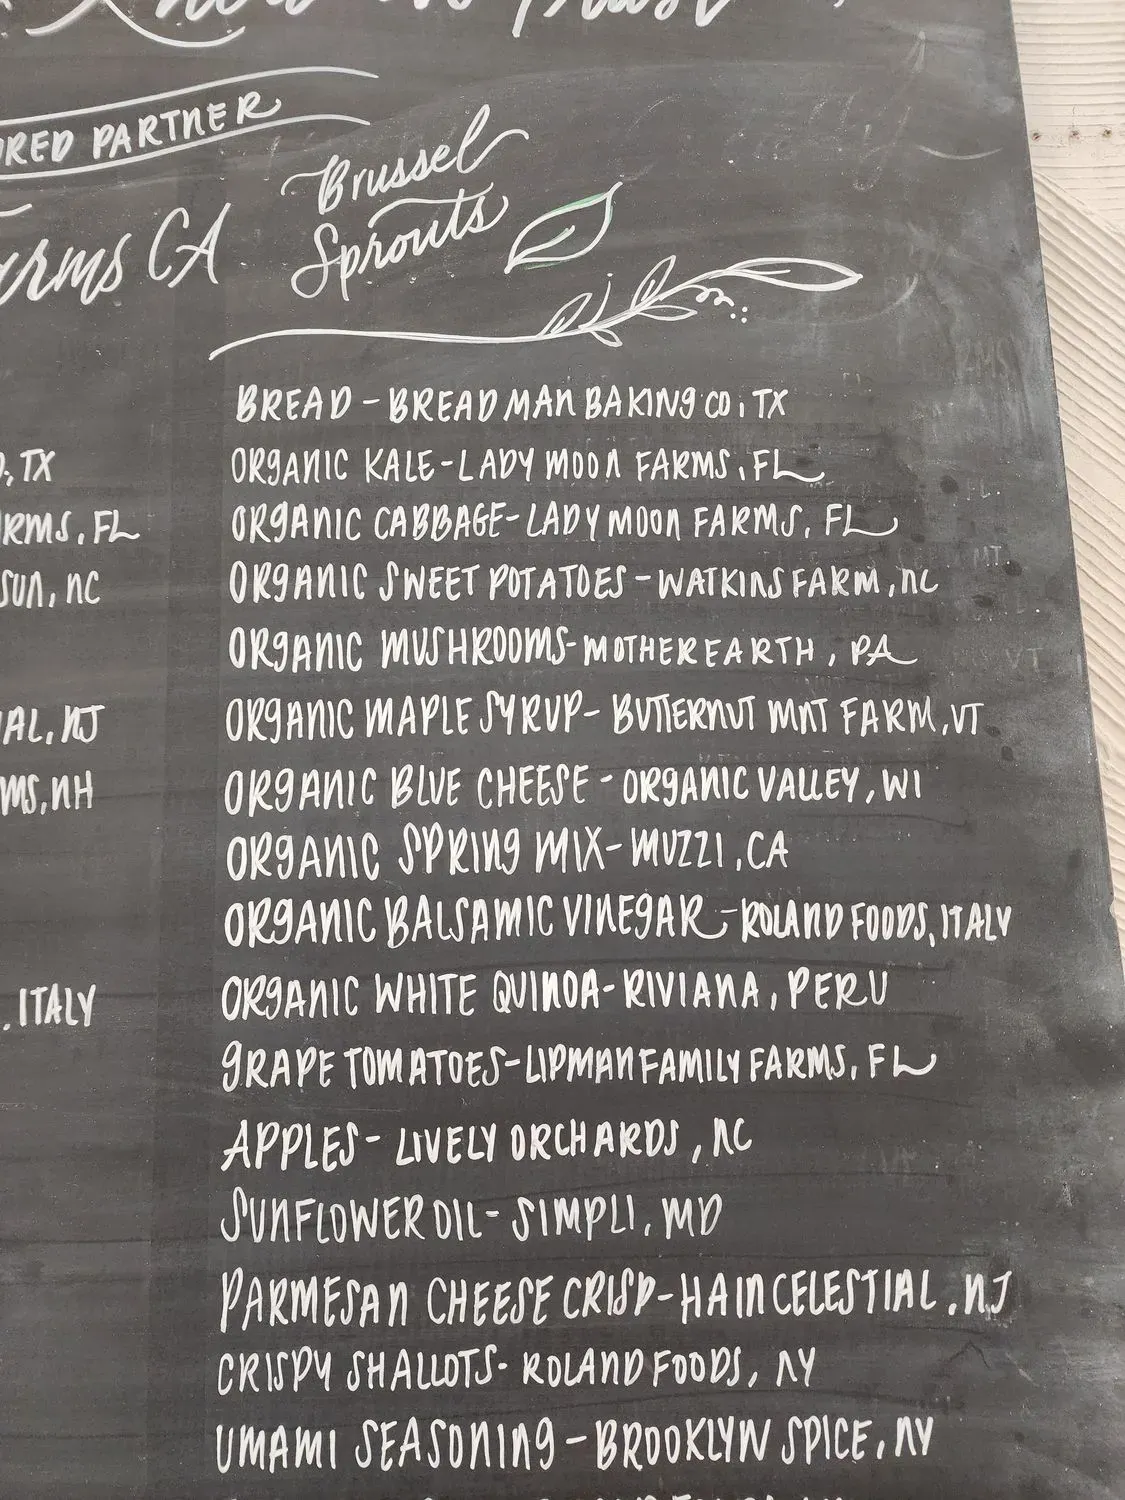 PARTNER
Brussel
Sprouts
CA
BREAD - BREAD MAN BAKING CO, TX
, TX
ORGANIC KALE - LADY MOON FARMS, FL
, FL
ORGANIC CABBAGE - LADY MOON FARMS, FL
SUN, NC
ORGANIC SWEET POTATOES - WATKINS FARM, NC
ORGANIC MUSHROOMS - MOTHER EARTH, PA
, NJ
ORGANIC MAPLE SYRUP - BUTTERNUT MNT FARM, VT
, NH
ORGANIC BLUE CHEESE - ORGANIC VALLEY, WI
ORGANIC SPRING MIX - MUZZI, CA
ORGANIC BALSAMIC VINEGAR - ROLAND FOODS, ITALY
. ITALY
ORGANIC WHITE QUINOA - RIVIANA, PERU
GRAPE TOMATOES - LIPMAN FAMILY FARMS, FL
APPLES - LIVELY ORCHARDS, NC
SUNFLOWER OIL - SIMPLI, MD
PARMESAN CHEESE CRISP - HAIN CELESTIAL, NJ
CRISPY SHALLOTS - ROLAND FOODS, NY
UMAMI SEASONING - BROOKLYN SPICE, NY